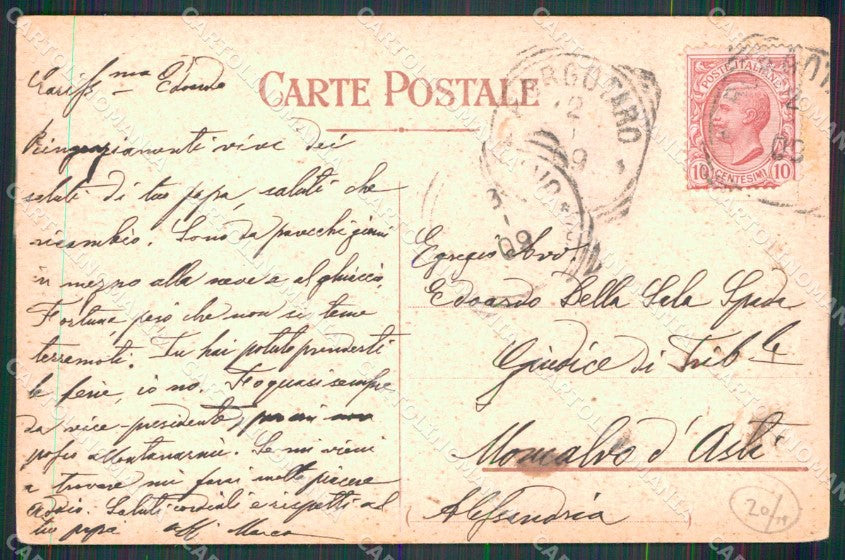 CARTE POSTALE
Cariss.mo Edoardo
Ringraziamenti vivi dei
saluti di tuo papa, saluti che
ricambio. Sono da parecchi giorni
in mezzo alla neve e al ghiaccio.
Fortuna però che non si teme
terremoti. Tu hai potuto prenderti
le ferie, io no. Fo quasi sempre
da vice-presidente,
posso allontanarmi. Se mi vieni
a trovare mi farai molto piacere
Addio. Saluti cordiali e rispetti al
tuo papa aff Marco
BORGOTARO
2
09
3
09
POSTE ITALIANE
10 CENTESIMI 10
Egregio Avv.
Edoardo Della Sala Spada
Giudice di Trib.le
Moncalvo d'Asti
Alessandria
20/
CARTOLINOMANIA